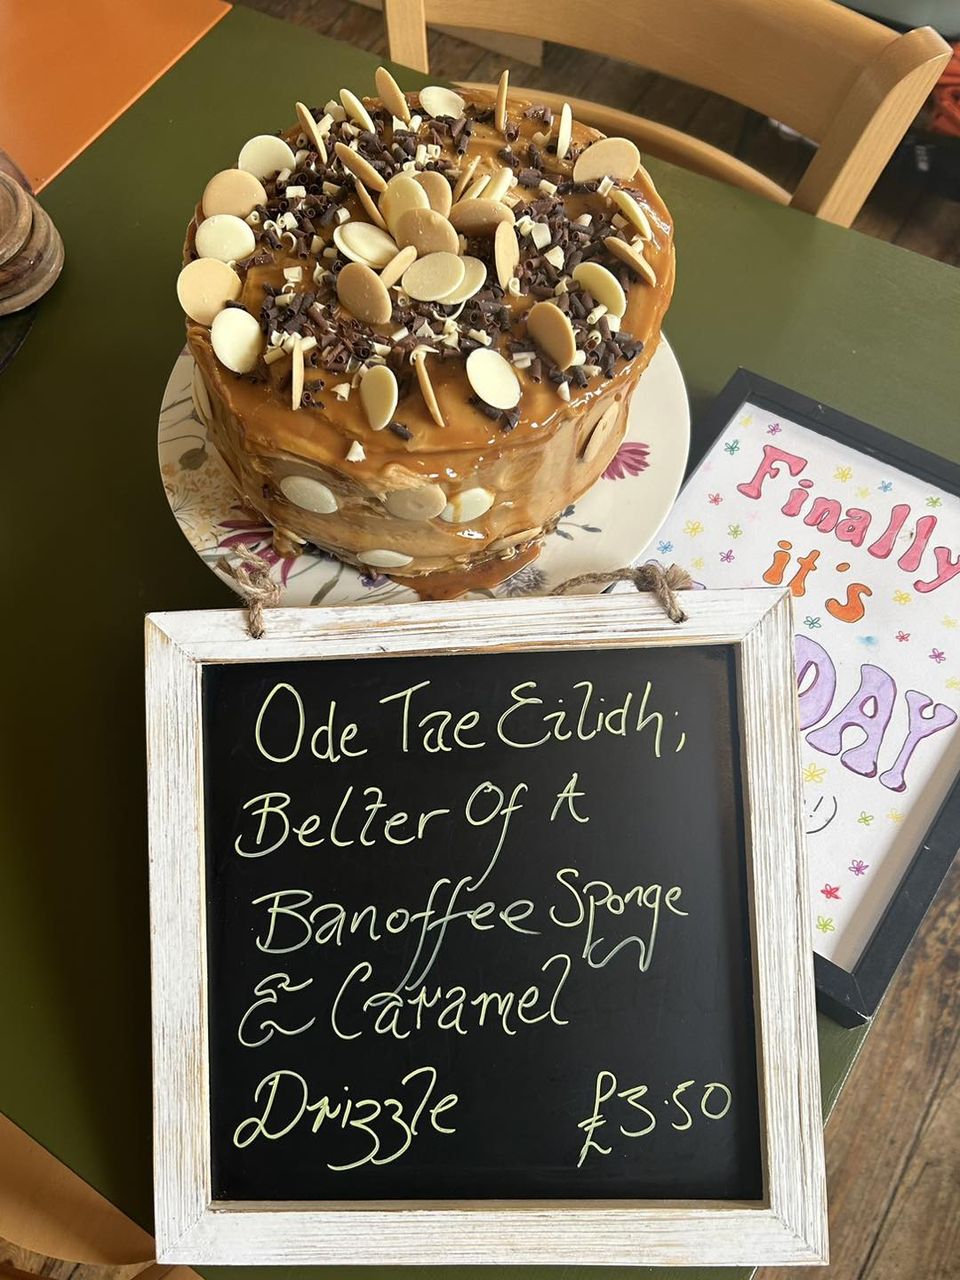 Ode Tae Eilidh;
Belter Of A
Banoffee Sponge
& Caramel
Drizzle £3.50
Finally
it's
DAY
!)